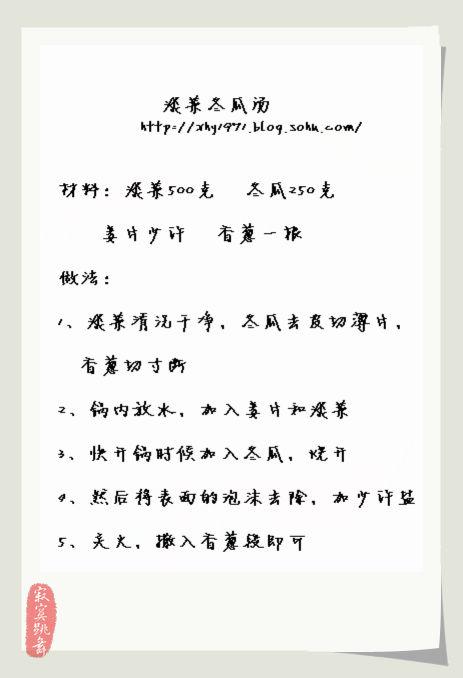 淡菜冬瓜汤
http://xhy1971.blog.sohu.com/
材料：淡菜500克 冬瓜250克
姜片少许 香葱一根
做法：
1、淡菜清洗干净，冬瓜去皮切薄片，
香葱切寸断
2、锅内放水，加入姜片和淡菜
3、快开锅时候加入冬瓜，烧开
4、然后将表面的泡沫去除，加少许盐
5、关火，撒入香葱段即可
寂寞跳舞